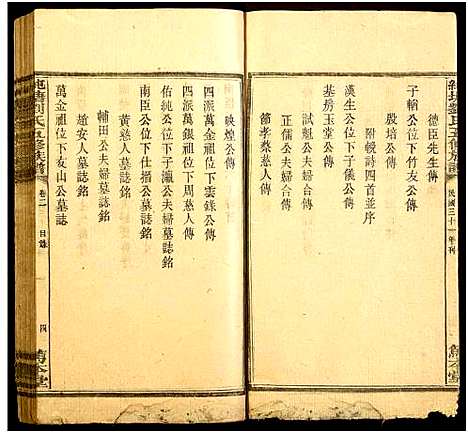 德臣先生傳
子韜公位下竹友公傳
殷培公傳
附輓詩四首並序
漢生公位下子儀公傳
基房玉堂公傳
試魁公夫婦合傳
節孝蔡慈人傳
劉氏五修族譜
民國三十一年刊
映煌公傳
四派萬金祖位下雲錄公傳
四派萬金祖位下周慈人傳
佑純公位下子瀛公夫婦墓誌銘
南臣公夫婦墓誌銘
黃慈人墓誌銘
輔田公夫婦墓誌銘
趙安人墓誌銘
萬金祖位下友山公墓誌
劉氏五修族譜
卷二
目錄
四